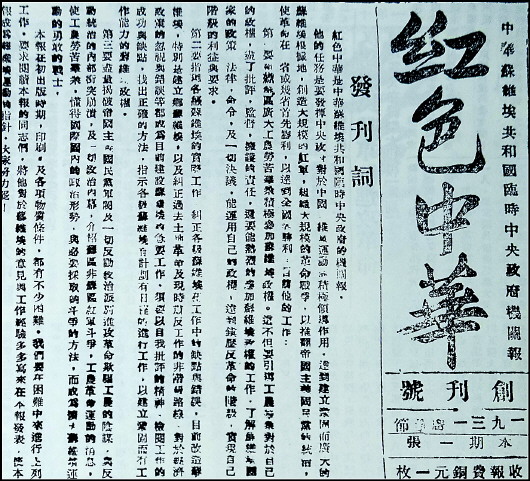 中華蘇維埃共和國臨時中央政府機關報
紅色中華
創刊號
一九三一
本期一張
收報費銅元一枚
發刊詞
紅色中華是中華蘇維埃共和國臨時中央政府的機關報，
他的任務是要發揮中央政府對於中國蘇維埃運動的積極領導作用，達到建立鞏固而廣大的
蘇維埃根據地，創造大規模的紅軍，組織大規模的革命戰爭，以推翻帝國主義國民黨的統治，
使革命在一省或幾省首先勝利，以達到全國的勝利，目前他的工作：
第一要組織蘇區廣大工農勞苦羣衆積極參加蘇維埃政權。這不但要引導工農羣衆對於自己
的政權，盡了批評，監督，擁護的責任，還要能熱烈的參加蘇維埃政權的工作，了解蘇維埃國
家的政策，法律，命令，及一切決議，能運用自己的政權，達到鎮壓反革命的階級，實現自己
階級的利益與要求。
第二要指導各級蘇維埃的實際工作，糾正各級蘇維埃在工作中的缺點與錯誤，目前改造蘇
維埃，特別是建立鄉蘇維埃，以及糾正過去土地革命及現時肅反工作的非階級路線，對於經濟
政策的忽視與錯誤等都成爲目前建設蘇維埃的急要工作，須要以自我批評的精神，檢閱工作的
成功與缺點，找出正確的方法，指示各級蘇維埃有計劃有日程的進行工作，以建立鞏固而有工
作能力的蘇維埃政權。
第三要盡量揭破帝國主義與國民黨軍閥及一切反動政治派別進攻革命欺騙工農的陰謀，與反
動統治的內部衝突崩潰，及一切政治內幕，介紹蘇區非蘇區紅軍鬥爭，工農革命運動的消息，
使工農勞苦羣衆，懂得國際國內的政治形勢，與必要採取的斗爭的方法，而成爲擴大蘇維埃運
動的勇敢的戰士。
本報在初出版時期，印刷，及各種物質條件，都有不少困難。我們要在困難中來進行上列
工作，要求閱讀本報的同志們，將他對於蘇維埃的意見與工作經驗多多寫來在本報發表，使本
報成爲蘇維埃運動的指針，大家努力罷！